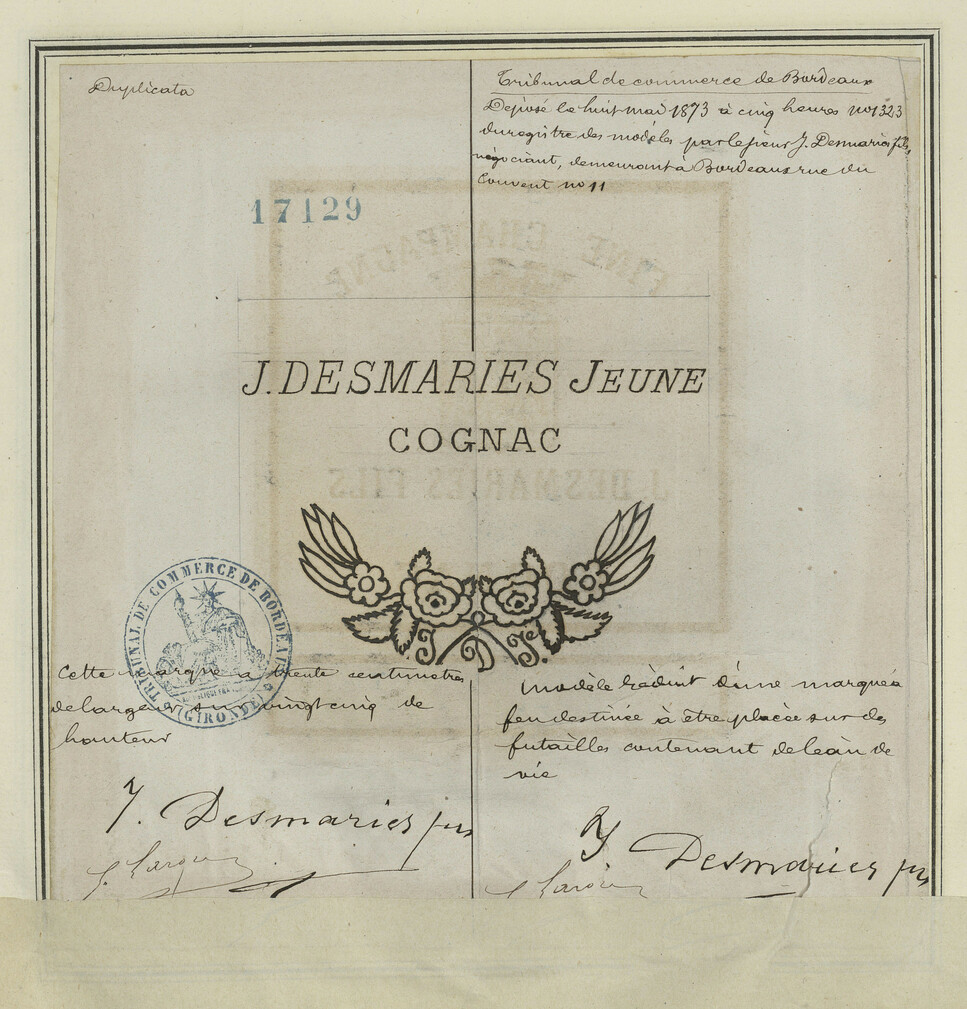 Duplicata
Tribunal de commerce de Bordeaux
Déposé le huit mai 1873 à cinq heures no 1323
du registre des modèles par le sieur J. Desmaries fils,
négociant, demeurant à Bordeaux rue du
Couvent no 11
17129
FINE CHAMPAGNE
J. DESMARIES JEUNE
COGNAC
J. DESMARIES FILS
TRIBUNAL DE COMMERCE DE BORDEAUX
(GIRONDE)
Cette marque a trente centimètres
de largeur sur vingt cinq de
hauteur
modèle réduit d'une marque à
feu destinée à être placée sur des
futailles contenant de l'eau de
vie
J. Desmaries fils
J. Desmaries fils